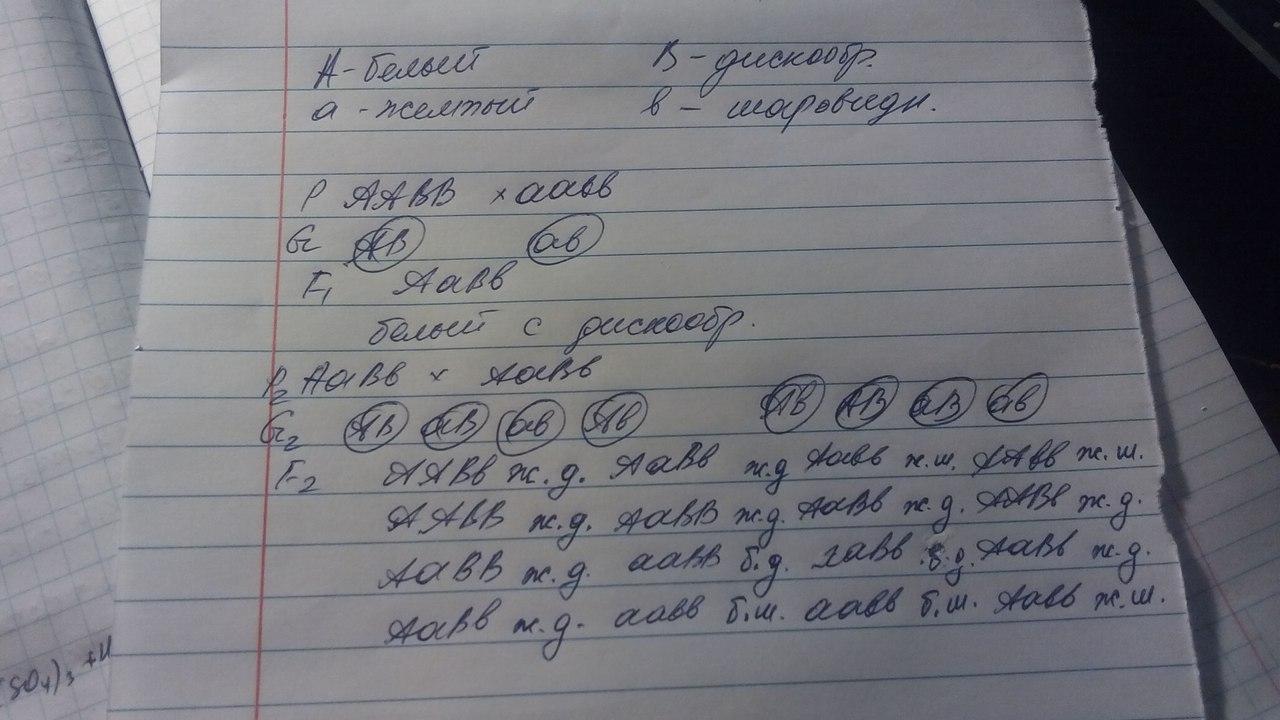 А - белый В - дискообр.
а - желтый в - шаровидн.
Р ААВВ × аавв
G АВ ав
F₁ АаВв
белый с дискообр.
Р₂ АаВв × АаВв
G₂ АВ аВ ав Ав Ав АВ аВ ав
F₂ ААВв ж.д. АаВв ж.д Аавв ж.ш. ААвв ж.ш.
ААВВ ж.д. АаВВ ж.д. АаВв ж.д. ААВв ж.д.
АаВВ ж.д. ааВВ б.д. ааВв б.д. АаВв ж.д.
АаВв ж.д. аавв б.ш. аавв б.ш. Аавв ж.ш.
SO₄)₃ + H